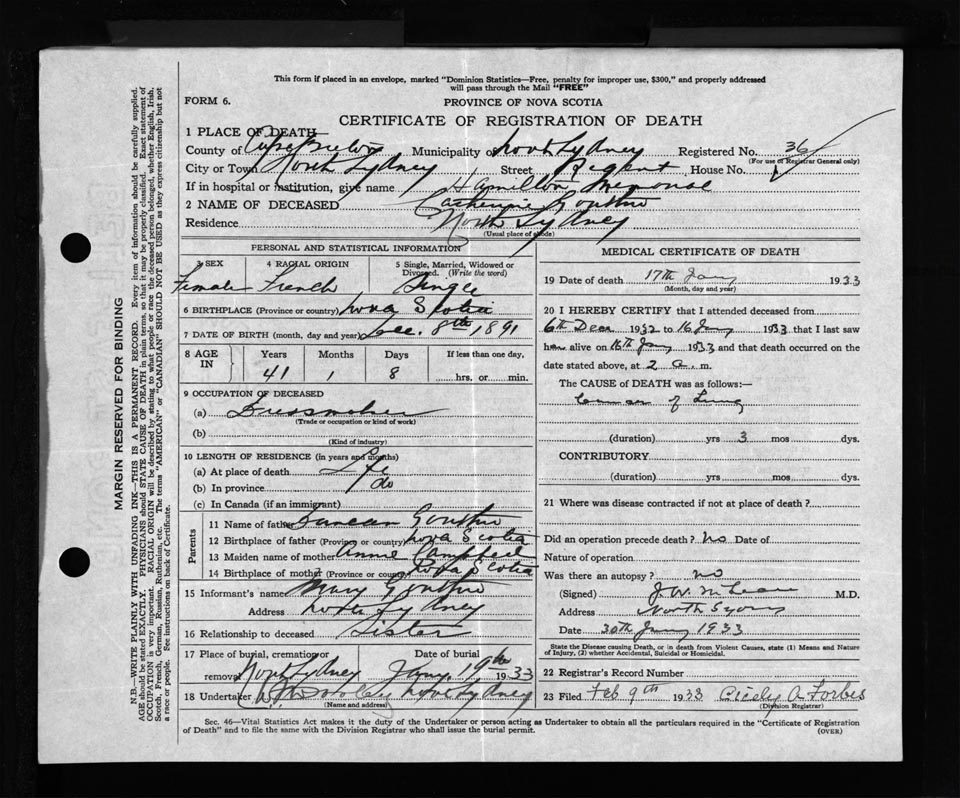 This form if placed in an envelope, marked "Dominion Statistics—Free, penalty for improper use, $300," and properly addressed
will pass through the Mail "FREE"
FORM 6.
PROVINCE OF NOVA SCOTIA
CERTIFICATE OF REGISTRATION OF DEATH
1 PLACE OF DEATH
County of Cape Breton Municipality of North Sydney Registered No. 36
(For use of Registrar General only)
City or Town North Sydney Street Regent House No.
If in hospital or institution, give name Hamilton Memorial
2 NAME OF DECEASED Catherine Gouthro
Residence North Sydney
(Usual place of abode)
PERSONAL AND STATISTICAL INFORMATION
3 SEX 4 RACIAL ORIGIN 5 Single, Married, Widowed or
Divorced. (Write the word)
Female French Single
6 BIRTHPLACE (Province or country) Nova Scotia
7 DATE OF BIRTH (month, day and year) Dec. 8th 1891
8 AGE IN Years Months Days If less than one day,
41 1 8 hrs. or min.
9 OCCUPATION OF DECEASED
(a) Dressmaker
(Trade or occupation or kind of work)
(b)
(Kind of industry)
10 LENGTH OF RESIDENCE (in years and months)
(a) At place of death Life
(b) In province do
(c) In Canada (if an immigrant)
Parents
11 Name of father Duncan Gouthro
12 Birthplace of father (Province or country) Nova Scotia
13 Maiden name of mother Annie Campbell
14 Birthplace of mother (Province or country) Nova Scotia
15 Informant's name Mary Gouthro
Address North Sydney
16 Relationship to deceased Sister
17 Place of burial, cremation or Date of burial
removal North Sydney Jany. 19th 1933
18 Undertaker North Sydney
(Name and address)
MEDICAL CERTIFICATE OF DEATH
19 Date of death 17th Jany 1933
(Month, day and year)
20 I HEREBY CERTIFY that I attended deceased from
6th Decr 1932 to 16 Jany 1933 that I last saw
her alive on 16th Jany 1933 and that death occurred on the
date stated above, at 2 a. m.
The CAUSE OF DEATH was as follows:—
Cancer of Lung
(duration) yrs 3 mos dys.
CONTRIBUTORY
(duration) yrs mos dys.
21 Where was disease contracted if not at place of death?
Did an operation precede death? No Date of
Nature of operation
Was there an autopsy? no
(Signed) J W McLean M.D.
Address North Sydney
Date 30th Jany 1933
State the Disease causing Death, or in death from Violent Causes, state (1) Means and Nature
of Injury, (2) whether Accidental, Suicidal or Homicidal.
22 Registrar's Record Number
23 Filed Feb 9th 1933 Cicely A Forbes
(Division Registrar)
Sec. 46—Vital Statistics Act makes it the duty of the Undertaker or person acting as Undertaker to obtain all the particulars required in the "Certificate of Registration
of Death" and to file the same with the Division Registrar who shall issue the burial permit.
(OVER)
MARGIN RESERVED FOR BINDING
N.B.—WRITE PLAINLY WITH UNFADING INK—THIS IS A PERMANENT RECORD. Every item of information should be carefully supplied.
AGE should be stated EXACTLY. PHYSICIANS should STATE CAUSE OF DEATH in plain terms, so that it may be properly classified. Exact statement of
OCCUPATION is very important. RACIAL ORIGIN will be described by stating to what people or race the deceased person belonged, whether English, Irish,
Scotch, French, German, Russian, Ruthenian, etc. The terms "AMERICAN" or "CANADIAN" SHOULD NOT BE USED as they express citizenship but not
a race or people. See instructions on back of Certificate.